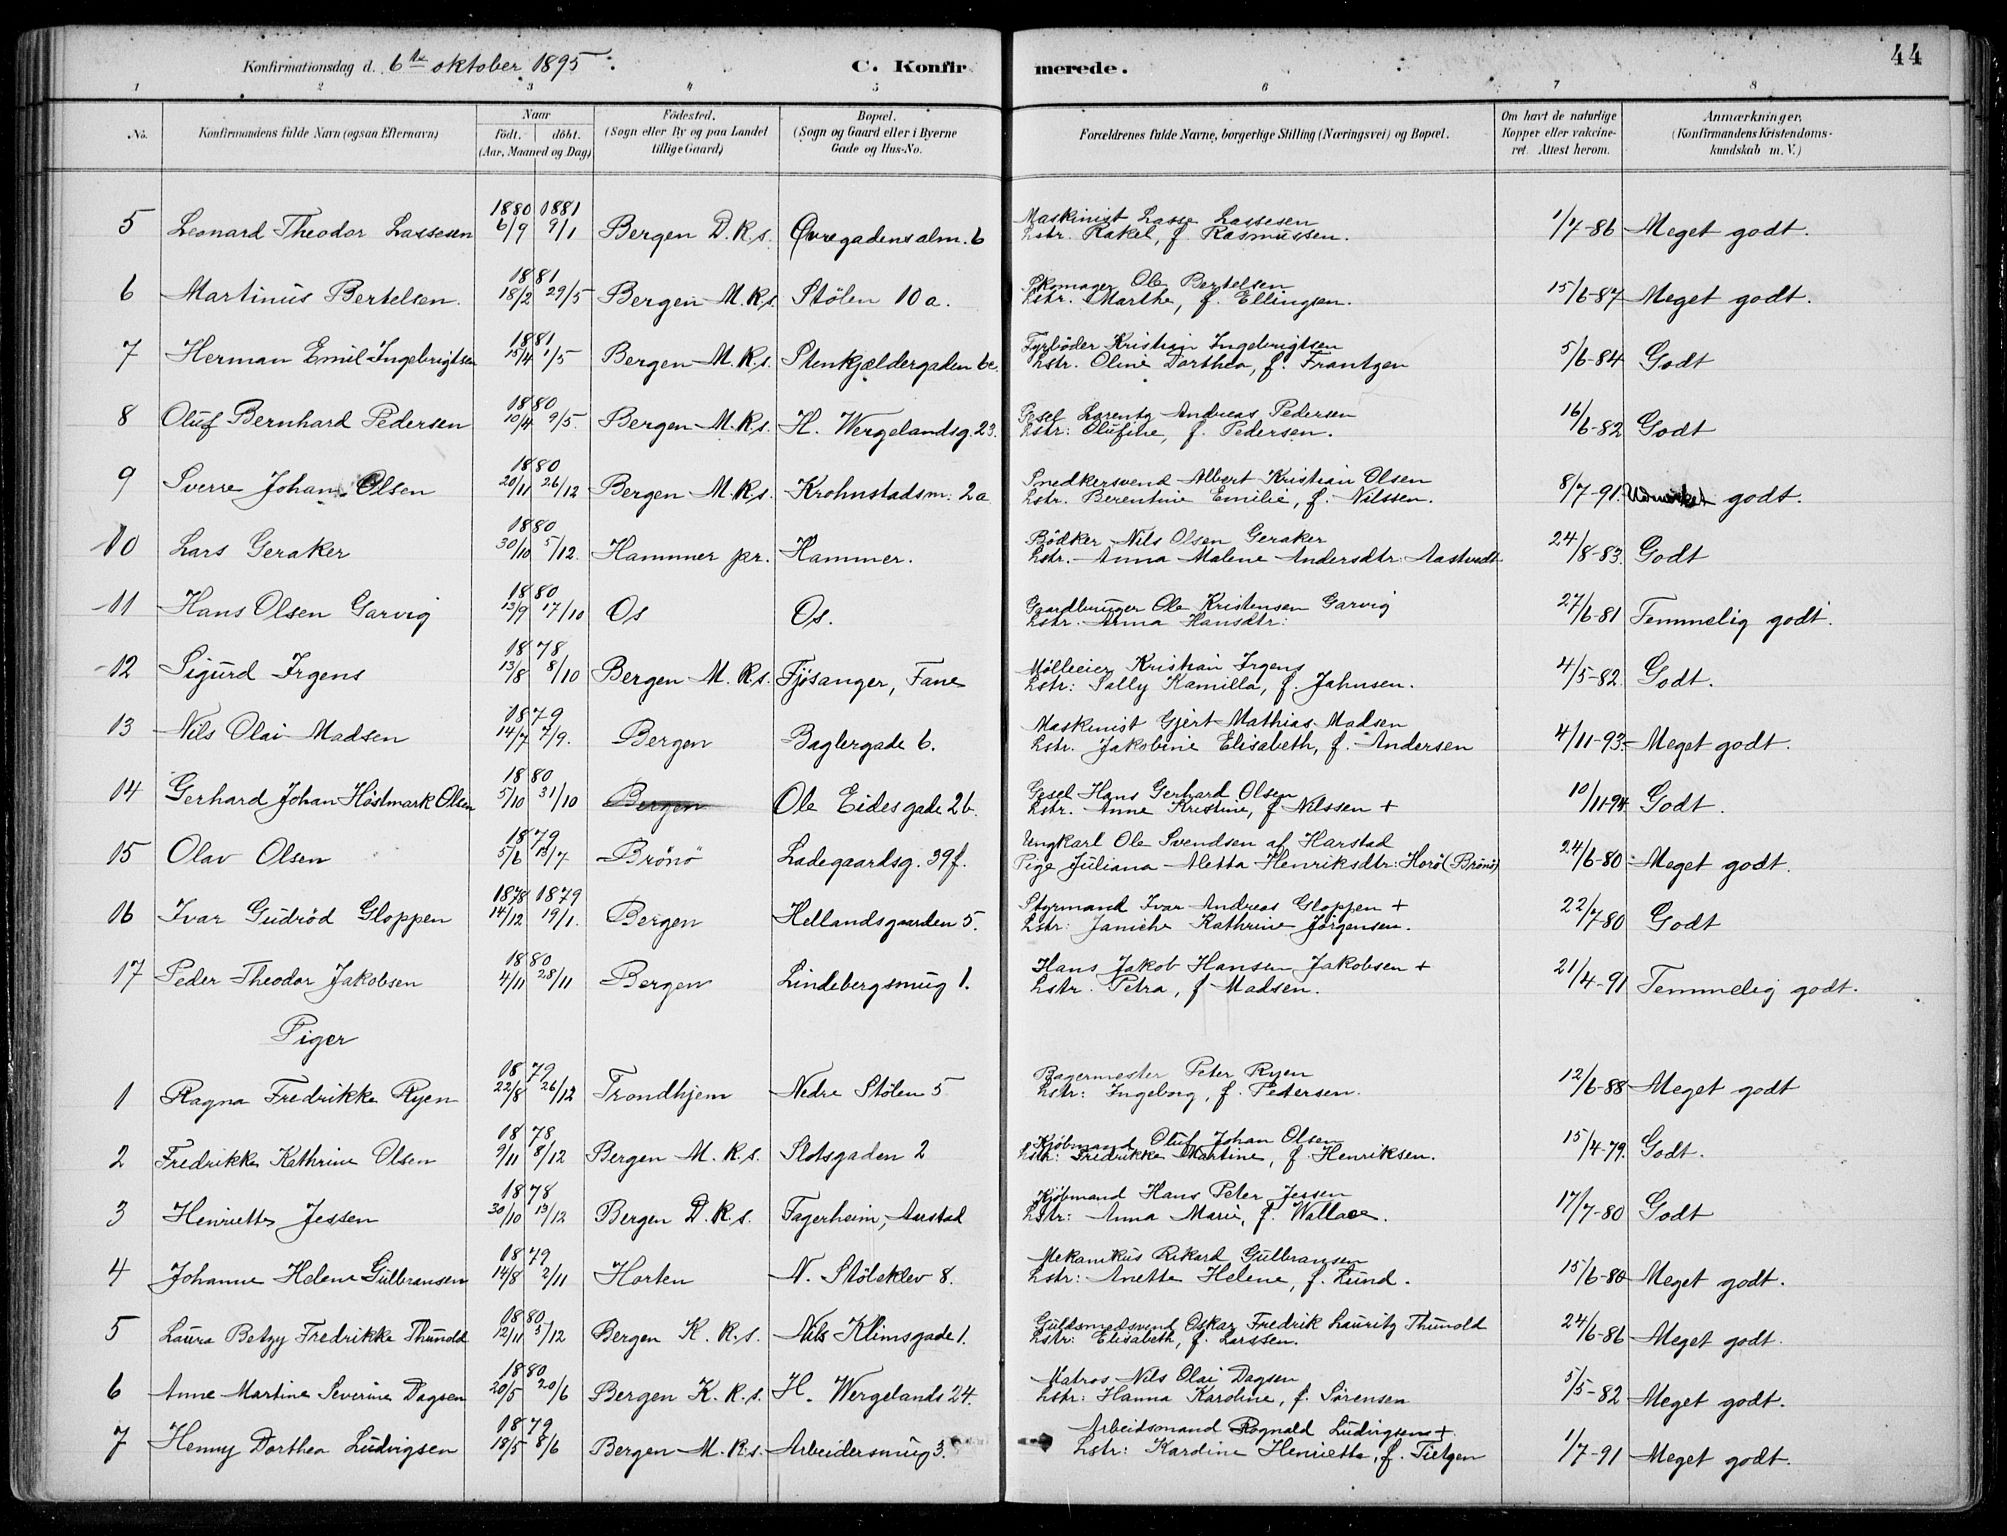 Konfirmationsdag d. 6te oktober 1895. C. Konfirmerede. 44
1 2 3 4 5 6 7 8
No. Konfirmandens fulde Navn (ogsaa Efternavn) Naar født. døbt. (Aar, Maaned og Dag) Fødested. (Sogn eller By og paa Landet tillige Gaard) Bopæl. (Sogn og Gaard eller i Byerne Gade og Hus-No. Forældrenes fulde Navne, borgerlige Stilling (Næringsvei) og Bopæl. Om havt de naturlige Kopper eller vakcineret. Attest herom. Anmærkninger. (Konfirmandens Kristendomskundskab m. V.)
1880 1881
5 Leonard Theodor Lassesen 6/9 9/1 Bergen D.K.s. Øvregadens alm. 6 Maskinist Lasse Lassesen 1/7-86 Meget godt.
Hstr. Rakel, f. Rasmussen.
1881
6 Martinus Bertelsen. 18/2 29/5 Bergen M.K.s. Stølen 10 a. Skomager Ole Bertelsen 15/6-87 Meget godt.
Hstr. Marthe, f. Ellingsen.
1881
7 Herman Emil Ingebrigtsen 15/4 1/5 Bergen M.K.s. Stenkjældergaden 6c. Fyrbøder Kristian Ingebrigtsen 5/6-84 Godt
Hstr. Oline Dorthea, f. Frantzen
1880
8 Oluf Bernhard Pedersen 10/4 9/5. Bergen M.K.s. H. Wergelandsg. 23. Gesel Lorentz Andreas Pedersen 16/6-82 Godt
Hstr: Olufine, f. Pedersen.
1880
9 Sverre Johan Olsen 20/11 26/12 Bergen M.K.s. Krohnstadsm. 2a Snedkersvend Albert Kristian Olsen 8/7-91. Udmerket godt.
Hstr. Berentine Emilie, f. Nilssen.
1880
10 Lars Geraker 30/10 5/12. Hammer pr. Hammer. Bødker Nils Olsen Geraker 24/8-83. Godt
Hstr. Anna Malene Andersdtr. Aastvedt
1880
11 Hans Olsen Garvig 13/9 17/10 Os Os. Gaardbruger Ole Kristensen Garvig 27/6-81 Temmelig godt.
Hstr. Anna Hansdtr:
1878
12 Sigurd Irgens 13/8 8/10 Bergen M.K.s. Fjøsanger, Fane Mølleeier Kristian Irgens 4/5-82. Godt.
Hstr: Sally Kamilla, f. Jahnsen.
1879
13 Nils Olai Madsen 14/7 7/9. Bergen Baglergade 6. Maskinist Gjert Mathias Madsen 4/11-93. Meget godt.
Hstr. Jakobine Elisabeth, f. Andersen
1880
14 Gerhard Johan Høstmark Olsen 5/10 31/10 Bergen Ole Eidesgade 26. Gesel Hans Gerhard Olsen 10/11-94. Godt.
Hstr. Anne Kristine, f Nilssen +
1879
15 Olav Olsen 5/6 13/7 Brønø Ladegaardsg. 39f. Ungkarl Ole Svendsen af Harstad 24/6-80 Meget godt.
Pige Juliana Aletta Henriksdtr: Horø (Brønø)
1878 1879
16 Ivar Gudrød Gloppen 14/12 19/1. Bergen Hellandsgaarden 5. Styrmand Ivar Andreas Gloppen + 22/7-80 Godt
Hstr: Janiche Kathrine Jørgensen.
1880
17 Peder Theodor Jakobsen 4/11 28/11 Bergen Lindebergsmug 1. Hans Jakob Hansen Jakobsen + 21/4-91 Temmelig godt.
Hstr. Petra, f Madsen.
Piger
1879
1 Ragna Fredrikke Ryen 22/8 26/12 Trondhjem Nedre Stølen 5 Bagermester Peter Ryen 12/6-88 Meget godt
Hstr: Ingeborg, f. Pedersen.
1878
2 Fredrikke Kathrine Olsen 9/11 8/12 Bergen M.K.s. Slotsgaden 2 Kjøbmand Oluf Johan Olsen 15/4-79. Godt.
Hstr: Fredrikke Martine, f. Henriksen.
1878
3 Henriette Jessen 30/10 13/12 Bergen D.K.s. Fagerheim, Aarstad Kjøbmand Hans Peter Jessen 17/7-80 Godt
Hstr: Anna Marie, f. Wallace.
1879
4 Johanne Helene Gulbransen 14/8 2/11 Horten N. Støleklev 8. Mekanikus Rikard Gulbransen 15/6-80 Meget godt.
Hstr: Anette Helene, f. Lund.
1880
5 Laura Betzy Fredrikke Thunold 12/11 5/12 Bergen K.K.s. Nils Klimsgade 1. Guldsmedsvend Oskar Fredrik Lauritz Thunold 24/6-86 Meget godt.
Hstr: Elisabeth, f. Larssen.
1880
6 Anne Martine Severine Dagsen 20/5 20/6 Bergen K.K.s. H. Wergelands 24. Matros Nils Olai Dagsen 5/5-82 Meget godt.
Hstr: Hanna Karoline, f. Sørensen
1879
7 Henny Dorthea Ludvigsen 18/5 8/6 Bergen M.K.s. Arbeidersmug 3. Arbeidsmand Rognald Ludvigsen + 1/7-91 Meget godt.
Hstr: Karoline Henriette, f. Tietgen